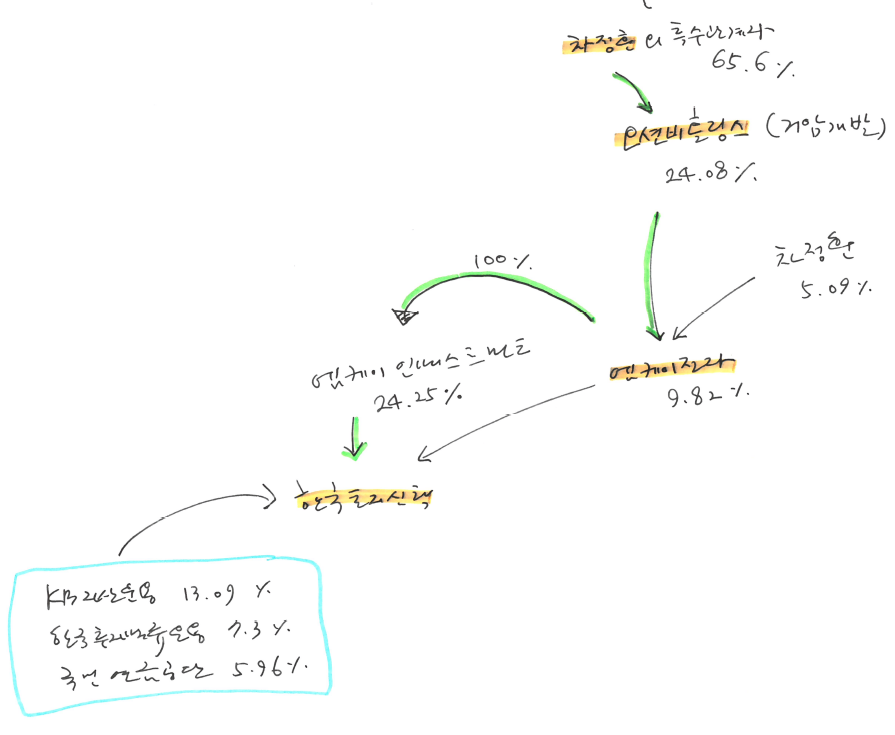 차정훈 외 특수관계자
65.6%
인선비홀딩스 (거암개발)
24.08%
차정훈
5.09%
100%
엠케이 인베스트먼트
24.25%
엠케이전자
9.82%
한국토지신탁
KB자산운용 13.09%
한국투자밸류운용 7.3%
국민연금공단 5.96%